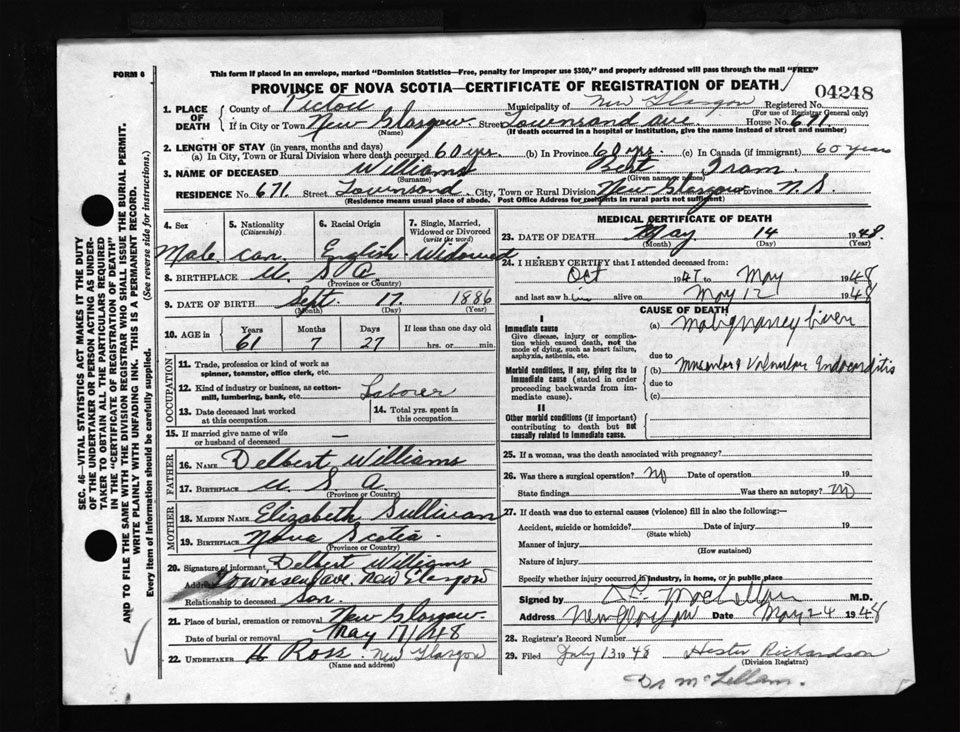 FORM 6
This form if placed in an envelope, marked "Dominion Statistics—Free, penalty for improper use $300," and properly addressed will pass through the mail "FREE"
PROVINCE OF NOVA SCOTIA—CERTIFICATE OF REGISTRATION OF DEATH
04248
1. PLACE OF DEATH County of Pictou Municipality of New Glasgow Registered No.
(For use of Registrar General only)
If in City or Town New Glasgow Street Townsand ave. House No. 671
(Name) (If death occurred in a hospital or institution, give the name instead of street and number)
2. LENGTH OF STAY (in years, months and days)
(a) In City, Town or Rural Division where death occurred 60 yrs. (b) In Province 60 yrs. (c) In Canada (if immigrant) 60 years
3. NAME OF DECEASED Williams Bert
(Surname) (Given name or names)
RESIDENCE No. 671 Street Townsand City, Town or Rural Division New Glasgow Province N.S.
(Residence means usual place of abode. Post Office Address for residents in rural parts not sufficient)
4. Sex
5. Nationality (Citizenship)
6. Racial Origin
7. Single, Married, Widowed or Divorced (write the word)
Male can. English Widowed
8. BIRTHPLACE U. S. A.
(Province or Country)
9. DATE OF BIRTH Sept. 17. 1886
(Month) (Day) (Year)
10. AGE in Years Months Days If less than one day old
61 7 27 hrs. or min.
OCCUPATION
11. Trade, profession or kind of work as spinner, teamster, office clerk, etc.
12. Kind of industry or business, as cotton-mill, lumbering, bank, etc. Laborer
13. Date deceased last worked at this occupation
14. Total yrs. spent in this occupation
15. If married give name of wife or husband of deceased —
FATHER
16. NAME Delbert Williams
17. BIRTHPLACE U. S. A.
(Province or Country)
MOTHER
18. MAIDEN NAME Elizabeth Sullivan
19. BIRTHPLACE Nova Scotia
(Province or Country)
20. Signature of informant Delbert Williams
Address Townsend ave. New Glasgow
Relationship to deceased Son.
21. Place of burial, cremation or removal New Glasgow.
Date of burial or removal May 17/48
22. UNDERTAKER H Ross New Glasgow
(Name and address)
MEDICAL CERTIFICATE OF DEATH
23. DATE OF DEATH May 14 1948
(Month) (Day) (Year)
24. I HEREBY CERTIFY that I attended deceased from:
Oct 1947 to May 1948
and last saw him alive on May 12 1948
CAUSE OF DEATH
I
Immediate cause
Give disease, injury or complication which caused death, not the mode of dying, such as heart failure, asphyxia, asthenia, etc.
(a) Malignancy liver
due to
Morbid conditions, if any, giving rise to immediate cause (stated in order proceeding backwards from immediate cause).
(b)
due to
(c)
II
Other morbid conditions (if important) contributing to death but not causally related to immediate cause.
25. If a woman, was the death associated with pregnancy?
26. Was there a surgical operation? no Date of operation 19
State findings Was there an autopsy? no
27. If death was due to external causes (violence) fill in also the following:—
Accident, suicide or homicide? Date of injury 19
(State which)
Manner of injury
(How sustained)
Nature of injury
Specify whether injury occurred in industry, in home, or in public place
Signed by MacLellan M.D.
Address New Glasgow Date May 24 1948
28. Registrar's Record Number
29. Filed July 13 1948 Hester Richardson
(Division Registrar)
Dr McLellan.
SEC. 46—VITAL STATISTICS ACT MAKES IT THE DUTY
OF THE UNDERTAKER OR PERSON ACTING AS UNDER-
TAKER TO OBTAIN ALL THE PARTICULARS REQUIRED
IN THE "CERTIFICATE OF REGISTRATION OF DEATH"
AND TO FILE THE SAME WITH THE DIVISION REGISTRAR WHO SHALL ISSUE THE BURIAL PERMIT.
WRITE PLAINLY WITH UNFADING INK. THIS IS A PERMANENT RECORD.
Every item of information should be carefully supplied. (See reverse side for instructions.)